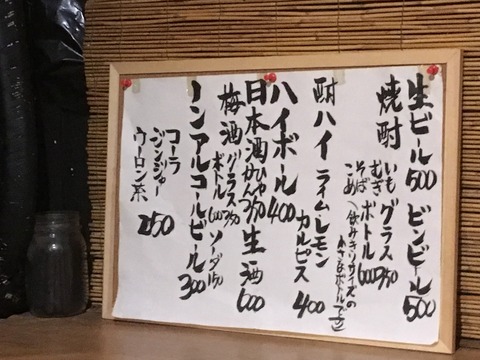 生ビール500 ビンビール500
焼酎 いも むぎ そば こめ グラス350 ボトル600
(飲みきりサイズの小さなボトルです)
酎ハイ ライム・レモン カルピス 400
ハイボール400
日本酒 ひや かん 生酒600
梅酒 グラス350 ボトル600 ソーダ150
ノンアルコールビール300
コーラ
ジンジャー
ウーロン茶 250